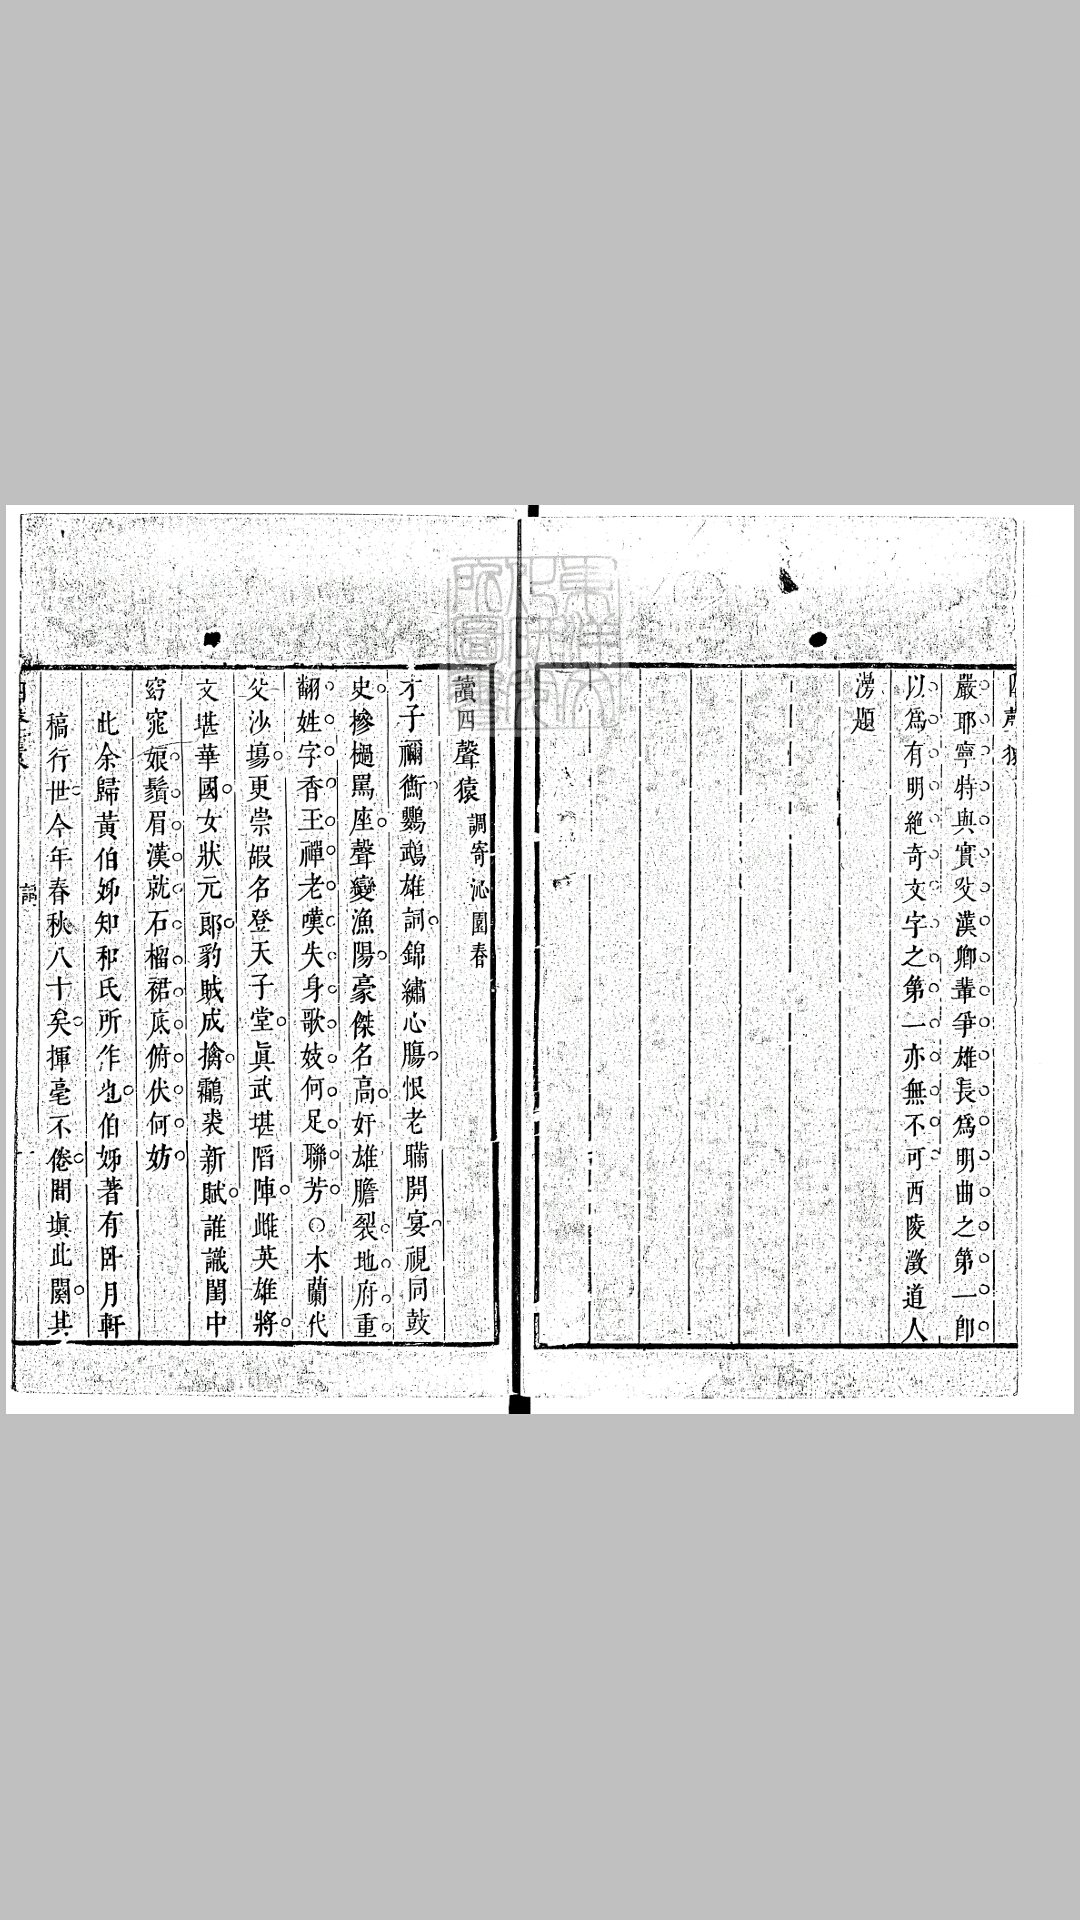 嚴耶寧特與實父漢卿輩爭雄長爲明曲之第一卽
以爲有明絶奇文字之第一亦無不可西陵澂道人
漫題
讀四聲猿 調寄沁園春
才子禰衡鸚鵡雄詞錦繡心腸恨老瞞開宴視同鼓
史摻檛罵座聲變漁陽豪傑名高奸雄膽裂地府重
翻姓字香王禪老嘆失身歌妓何足聯芳○木蘭代
父沙場更崇嘏名登天子堂眞武堪陷陣雌英雄將
文堪華國女狀元郎豹賊成擒鸘裘新賦誰識閨中
窈窕娘鬚眉漢就石榴裙底俯伏何妨
此余歸黃伯姊知和氏所作也伯姊著有臥月軒
稿行世今年春秋八十矣揮毫不倦間塡此闋其